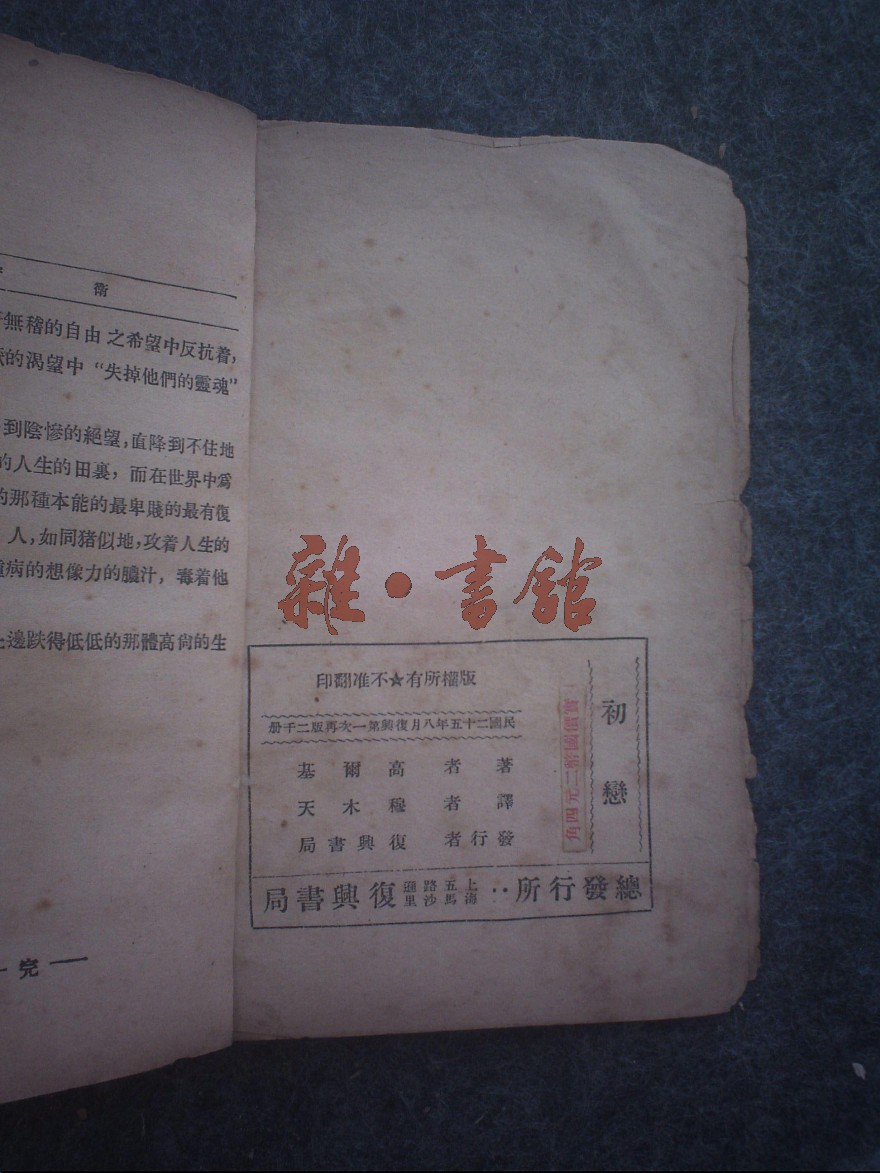 衛
無稽的自由之希望中反抗着，
的渴望中“失掉他們的靈魂”
到陰慘的絕望，直降到不住地
的人生的田裏，而在世界中爲
的那種本能的最卑賤的最有復
人，如同猪似地，攻着人生的
病的想像力的膿汁，毒着他
邊跌得低低的那體高尙的生
完
雜•書館
初戀
實價國幣二元四角
版權所有★不准翻印
民國二十五年八月復興第一次再版二千册
著者 高爾基
譯者 穆木天
發行者 復興書局
總發行所：上海五馬路沙遜里 復興書局